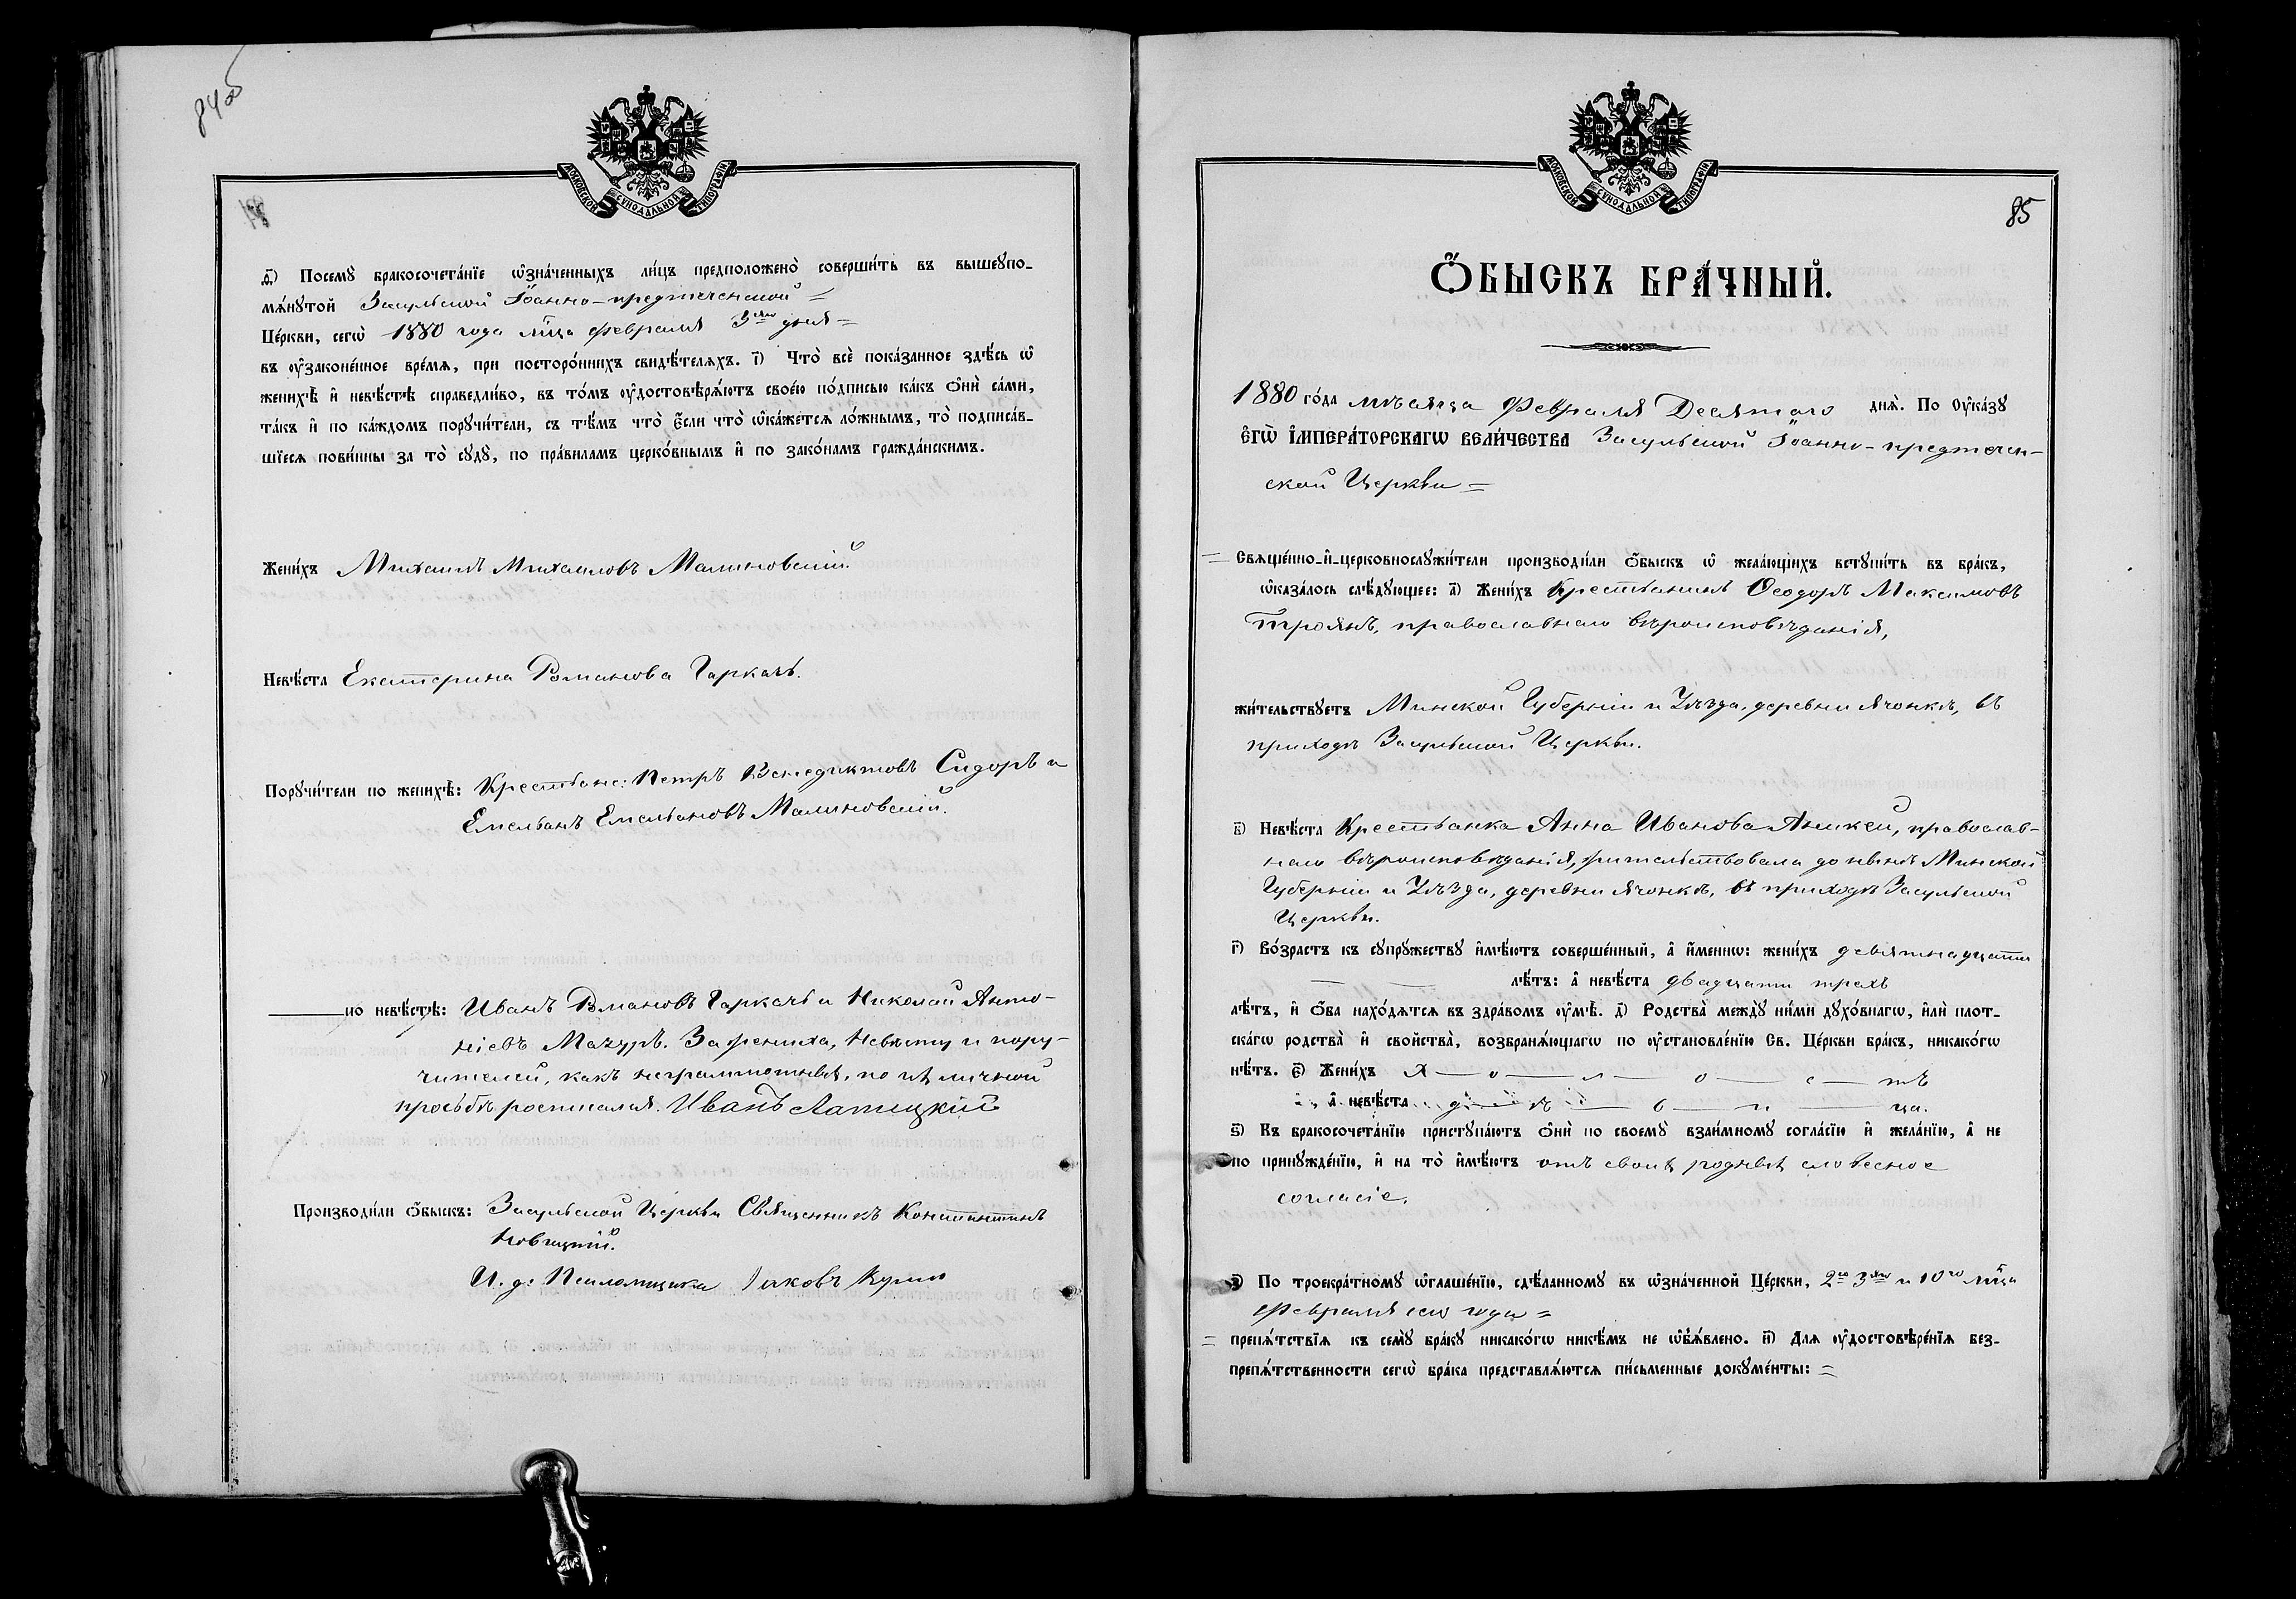 84об
МОСКОВСКОЙ СѴНОДАЛЬНОЙ ТИПОГРАФІИ
д҃і) Посемꙋ̀ бракосочета́нїе ѡ҆зна́ченныхъ ли́цъ предположено̀ соверши́ть въ вышеꙋпо-
мѧ́нꙋтой Засульской Іоанно-предтеченской =
Це́ркви, сегѡ̀ 1880 года м҃ца Февраля 3го дня =
въ оу҆законе́нное вре́мѧ, при посторо́ннихъ свидѣ́телѧхъ. і҃) Что̀ всѐ пока́занное здѣ́сь ѡ҆
женихѣ̀ и҆ невѣ́стѣ справедли́во, въ то́мъ оу҆достовѣрѧ́ютъ свое́ю по́дписью ка́къ ѻ҆нѝ са́ми,
та́къ и҆ по ка́ждомъ порꙋчи́тели, съ тѣ́мъ что̀ є҆́сли что̀ ѡ҆ка́жетсѧ ло́жнымъ, то̀ подписа́в-
шїесѧ пови́нны за то̀ сꙋдꙋ̀, по пра́виламъ церко́внымъ и҆ по зако́намъ гражда́нскимъ.
Жени́хъ Михаилъ Михаиловъ Малиновскій.
Невѣ́ста Екатерина Романова Гаркачъ.
Порꙋчи́тели по женихѣ̀: Крестьяне: Петръ Венедиктовъ Сидоръ и
Емельянъ Емельяновъ Малиновскій.
по невѣ́стѣ: Иванъ Романовъ Гаркачъ и Николай Анто-
ніевъ Мазуръ. За жениха, невѣсту и пору-
чителей, какъ неграммотныхъ, по ихъ личной
просьбѣ росписался Иванъ Лапицкій
Производи́ли ѻ҆́быскъ: Засульской Церкви Священникъ Константинъ
Новицкій.
И. д. Псаломщика Іаковъ
МОСКОВСКОЙ СѴНОДАЛЬНОЙ ТИПОГРАФІИ
85
Ѻ҆́БЫСКЪ БРА́ЧНЫЙ.
1880 го́да мѣсяца Февраля Десятаго днѧ̀. По Оу҆ка́зꙋ
Є҆ГѠ̀ І҆МПЕРА́ТОРСКАГѠ ВЕЛИ́ЧЕСТВА Засульской Іоанно-предтечен-
ской Церкви =
= Свѧще́нно-и҆-церковнослꙋжи́тели производи́ли ѻ҆́быскъ ѡ҆ жела́ющихъ встꙋпи́ть въ бра́къ,
ѡ҆каза́лось слѣ́дꙋющее: а҃) Жени́хъ Крестьянинъ Ѳеодоръ Максимовъ
Троянъ, православнаго вѣроисповѣданія,
жи́тельствꙋетъ Минской Губерніи и Уѣзда, деревни Ячонкѣ, въ
приходѣ Засульской Церкви.
в҃) Невѣ́ста Крестьянка Анна Иванова Аникей, православ-
наго вѣроисповѣданія, жительствовала до нынѣ Минской
Губерніи и Уѣзда, деревни Ячонкѣ, въ приходѣ Засульской
Церкви.
г҃) Во́зрастъ къ сꙋпрꙋ́жествꙋ и҆мѣ́ютъ соверше́нный, а҆ и҆́меннѡ: жени́хъ девятнадцати
лѣ́тъ: а҆ невѣ́ста двадцати трехъ
лѣ́тъ, и҆ ѻ҆́ба нахо́дѧтсѧ въ здра́вомъ оу҆мѣ̀. д҃) Родства̀ междꙋ̀ ни́ми дꙋхо́внагѡ, и҆лѝ плот-
ска́гѡ родства̀ и҆ свойства̀, возбранѧ́ющагѡ по оу҆становле́нїю Св. Це́ркви бра́къ, никако́гѡ
нѣ́тъ. є҃) Жени́хъ Х — о — л — о — с — тъ
, а҆ невѣ́ста д — ѣ — в — и — ца.
ѕ҃) Къ бракосочета́нїю пристꙋпа́ютъ ѻ҆нѝ по своемꙋ̀ взаи́мномꙋ согла́сїю и҆ жела́нїю, а҆ не
по принꙋжде́нїю, и҆ на то̀ и҆мѣ́ютъ отъ своихъ родныхъ словесное
согласіе.
з҃) По троекра́тномꙋ ѡ҆глаше́нїю, сдѣ́ланномꙋ въ ѡ҆зна́ченной Це́ркви, 2го 3го и 10го м҃ца
Февраля сего года =
= препѧ́тствїѧ къ семꙋ̀ бра́кꙋ никако́гѡ никѣ́мъ не ѡ҆б̾ѧ́влено. и҃) Длѧ оу҆достовѣре́нїѧ без-
препѧ́тственности сегѡ̀ бра́ка представлѧ́ютсѧ пи́сьменные докꙋме́нты: =